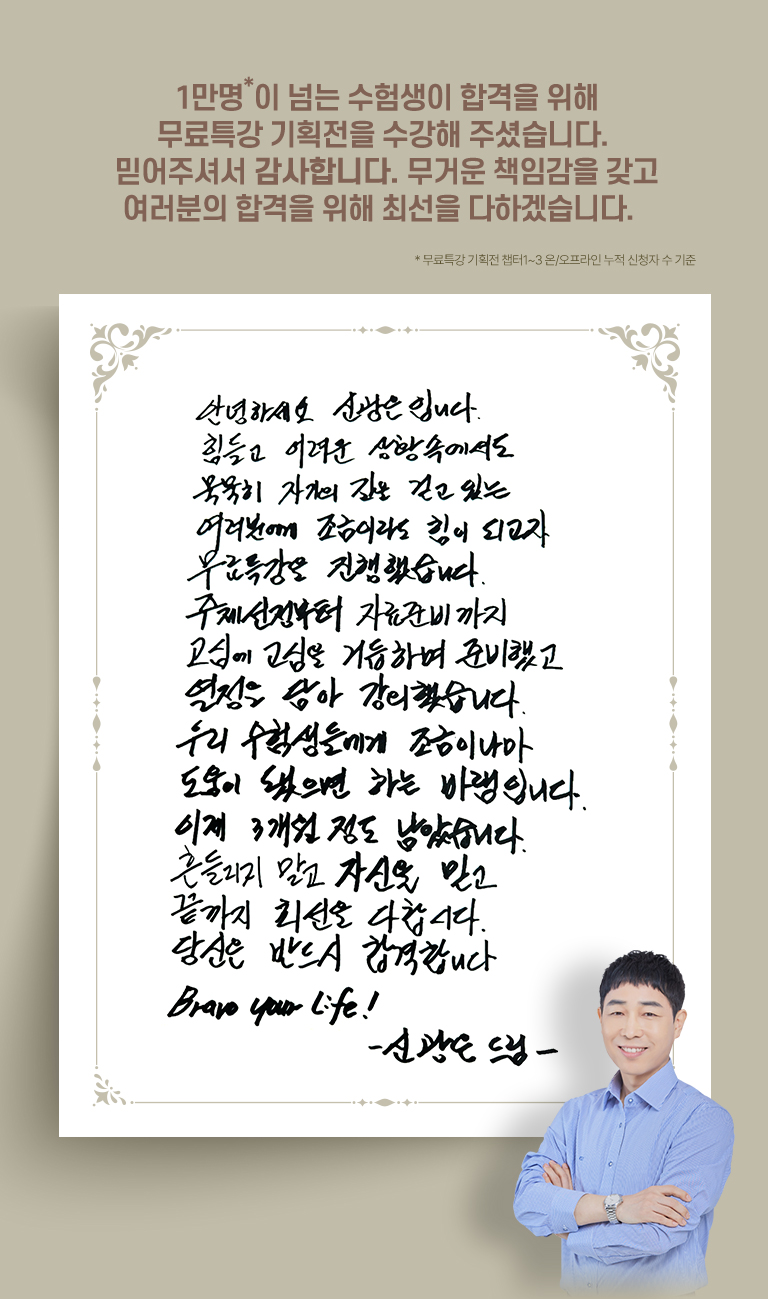 1만명*이 넘는 수험생이 합격을 위해
무료특강 기획전을 수강해 주셨습니다.
믿어주셔서 감사합니다. 무거운 책임감을 갖고
여러분의 합격을 위해 최선을 다하겠습니다.
* 무료특강 기획전 챕터1~3 온/오프라인 누적 신청자 수 기준
안녕하세요 신광은입니다.
힘들고 어려운 상황속에서도
묵묵히 자기의 길을 걷고 있는
여러분에게 조금이라도 힘이 되고자
무료특강을 진행했습니다.
주제선정부터 자료준비까지
고심에 고심을 거듭하며 준비했고
열정을 담아 강의했습니다.
우리 수험생들에게 조금이나마
도움이 됐으면 하는 바램입니다.
이제 3개월 정도 남았습니다.
흔들리지 말고 자신을 믿고
끝까지 최선을 다합시다.
당신은 반드시 합격합니다
Bravo your Life!
-신광은 드림-